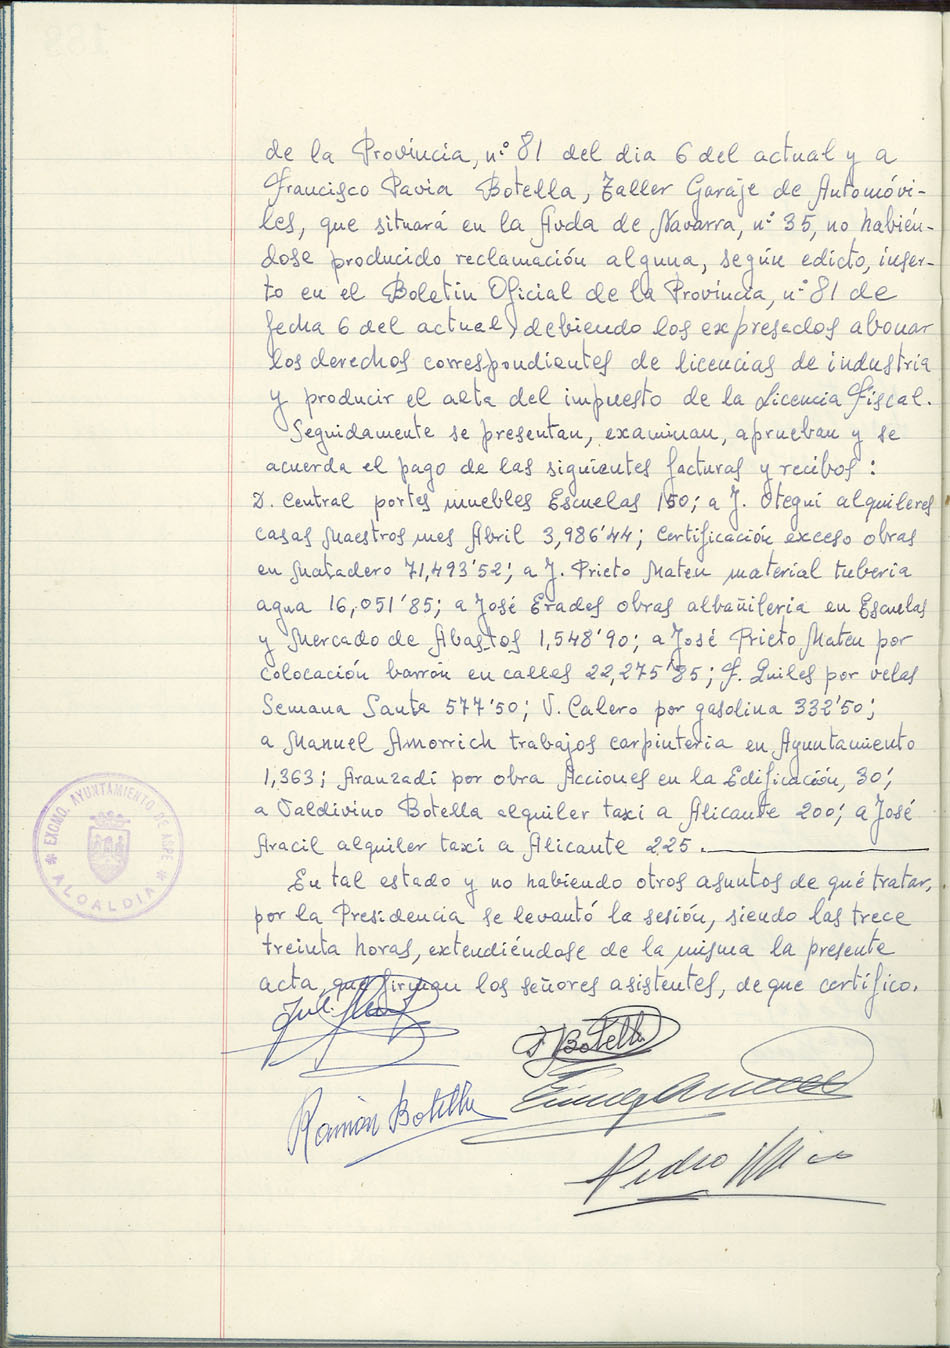 de la Provincia, nº 81 del dia 6 del actual y a
Francisco Pavia Botella, Taller Garaje de Automóvi-
les, que situará en la Avda de Navarra, nº 35, no habién-
dose producido reclamación alguna, según edicto, inser-
to en el Boletin Oficial de la Provincia, nº 81 de
fecha 6 del actual, debiendo los expresados abonar
los derechos correspondientes de licencias de industria
y producir el alta del impuesto de la Licencia Fiscal.
Seguidamente se presentan, examinan, aprueban y se
acuerda el pago de las siguientes facturas y recibos:
D. Central portes muebles Escuelas 150; a J. Otegui alquileres
casas Maestros mes Abril 3,986'44; Certificación exceso obras
en Matadero 71,493'52; a J. Prieto Mateu material tuberia
agua 16,051'85; a José Erades obras albañileria en Escuelas
y Mercado de Abastos 1,548'90; a José Prieto Mateu por
colocación barrón en calles 22,275'85; J. Quiles por velas
Semana Santa 577'50; V. Calero por gasolina 332'50;
a Manuel Amorrich trabajos carpinteria en Ayuntamiento
1,363; Aranzadi por obra Acciones en la Edificación, 30';
a Valdivino Botella alquiler taxi a Alicante 200; a José
Aracil alquiler taxi a Alicante 225.
En tal estado y no habiendo otros asuntos de qué tratar,
por la Presidencia se levantó la sesión, siendo las trece
treinta horas, extendiéndose de la misma la presente
acta, que firman los señores asistentes, de que certifico.
EXCMO. AYUNTAMIENTO DE ASPE
ALCALDIA
Botella
Ramón Botella
Pedro